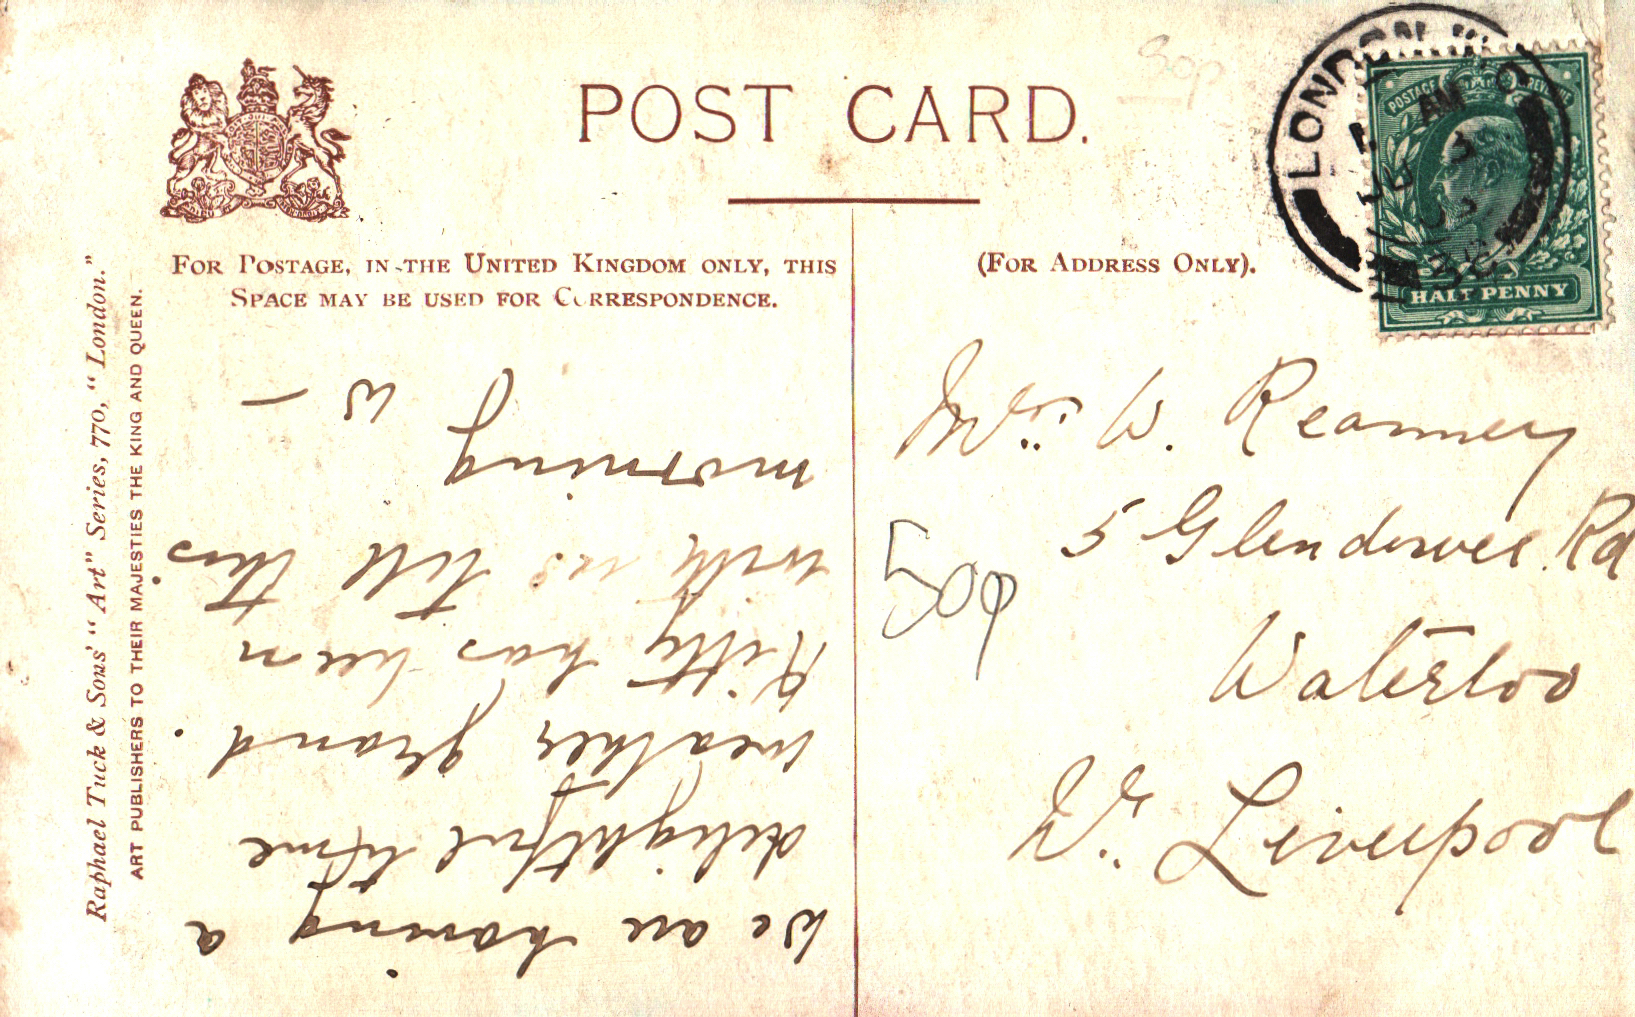 POST CARD.
50p
FOR POSTAGE, IN THE UNITED KINGDOM ONLY, THIS
SPACE MAY BE USED FOR CORRESPONDENCE.
(FOR ADDRESS ONLY).
Raphael Tuck & Sons' "Art" Series, 770, "London."
ART PUBLISHERS TO THEIR MAJESTIES THE KING AND QUEEN.
We are having a
delightful time
weather grand.
Kitty has been
with us till this
morning
W –
LONDON W.C
AM
POSTAGE REVENUE
HALFPENNY
W. Reanney
5 Glendower Rd
Waterloo
Nr. Liverpool
50p